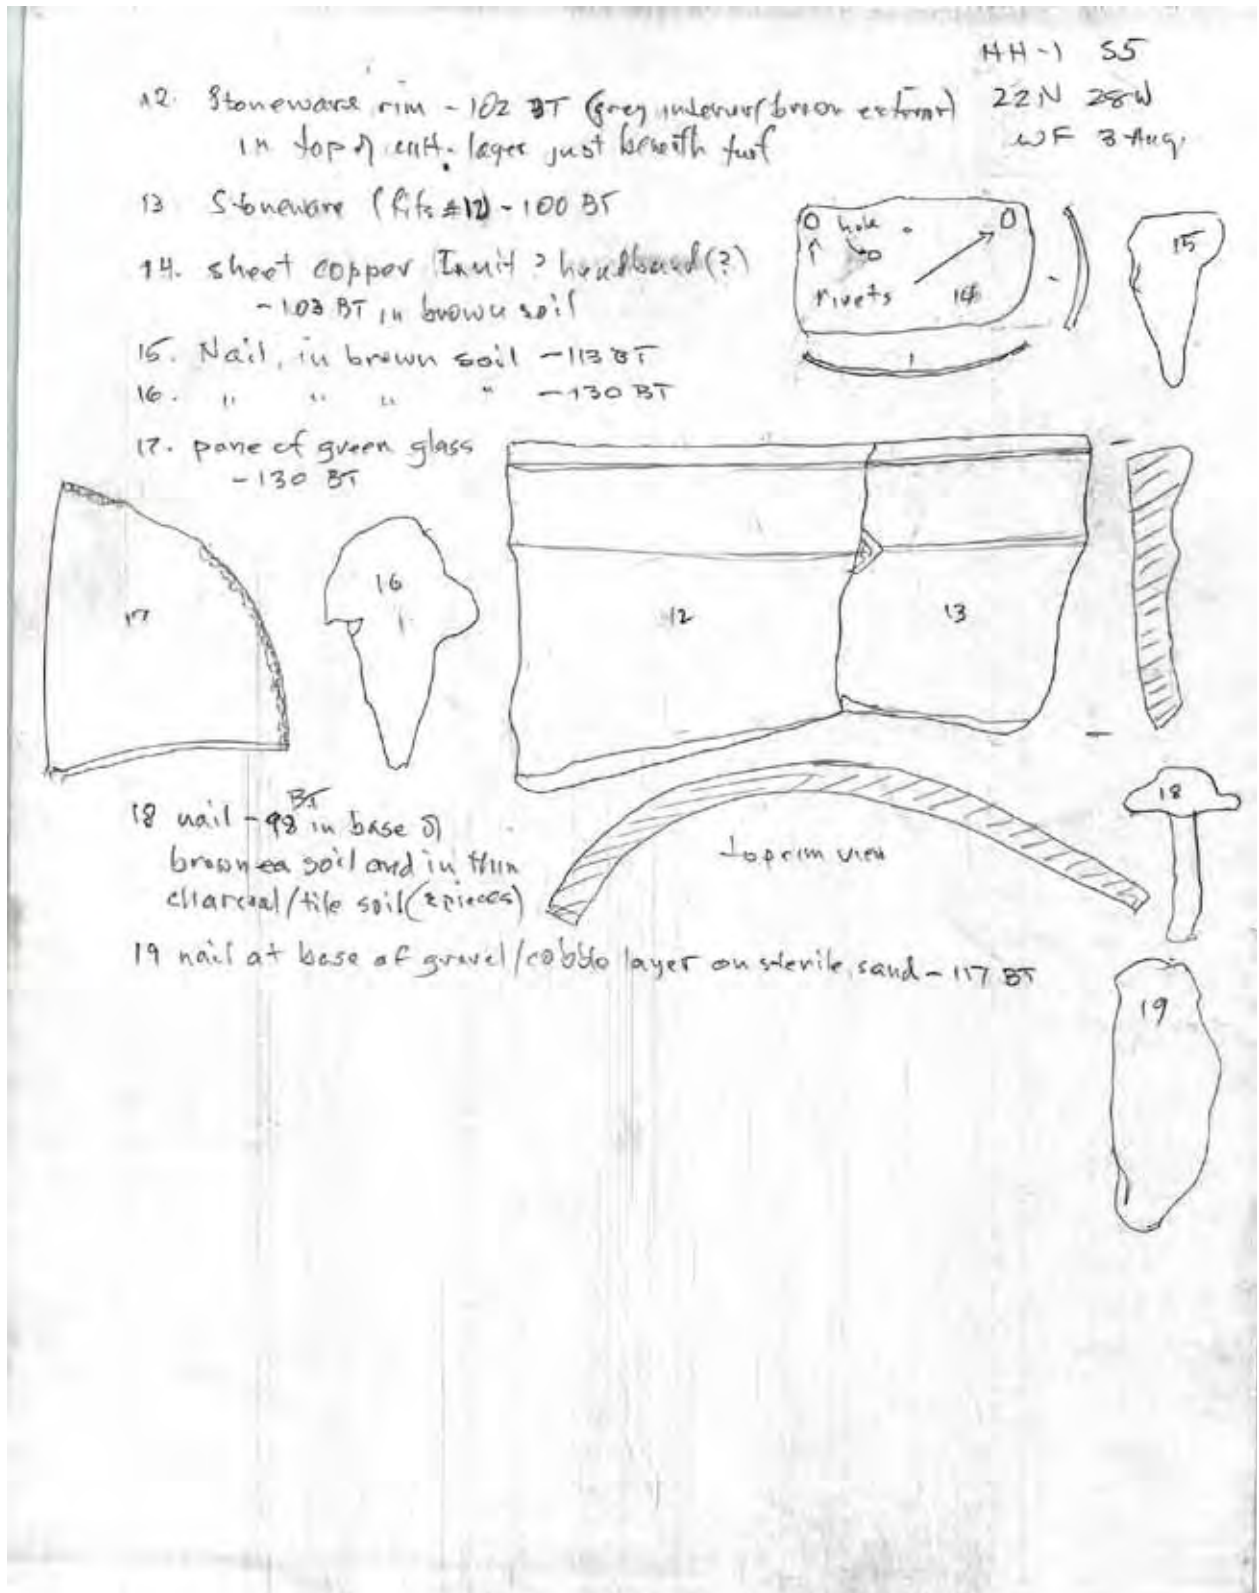 HH-1 S5
22N 28W
WF 3 Aug.
12. Stoneware rim - 102 BT (grey interior/brown exterior)
in top of cult. layer just beneath turf
13 Stoneware (fits #12) - 100 BT
14. sheet copper Inuit ? headband (?)
- 103 BT in brown soil
15. Nail, in brown soil - 113 BT
16. " " " " - 130 BT
17. pane of green glass
- 130 BT
hole
rivets 14
15
17
16
12
13
18 nail - 98 BT in base of
brown soil and in thin
charcoal/tile soil (2 pieces)
top rim view
18
19 nail at base of gravel/cobble layer on sterile sand - 117 BT
19